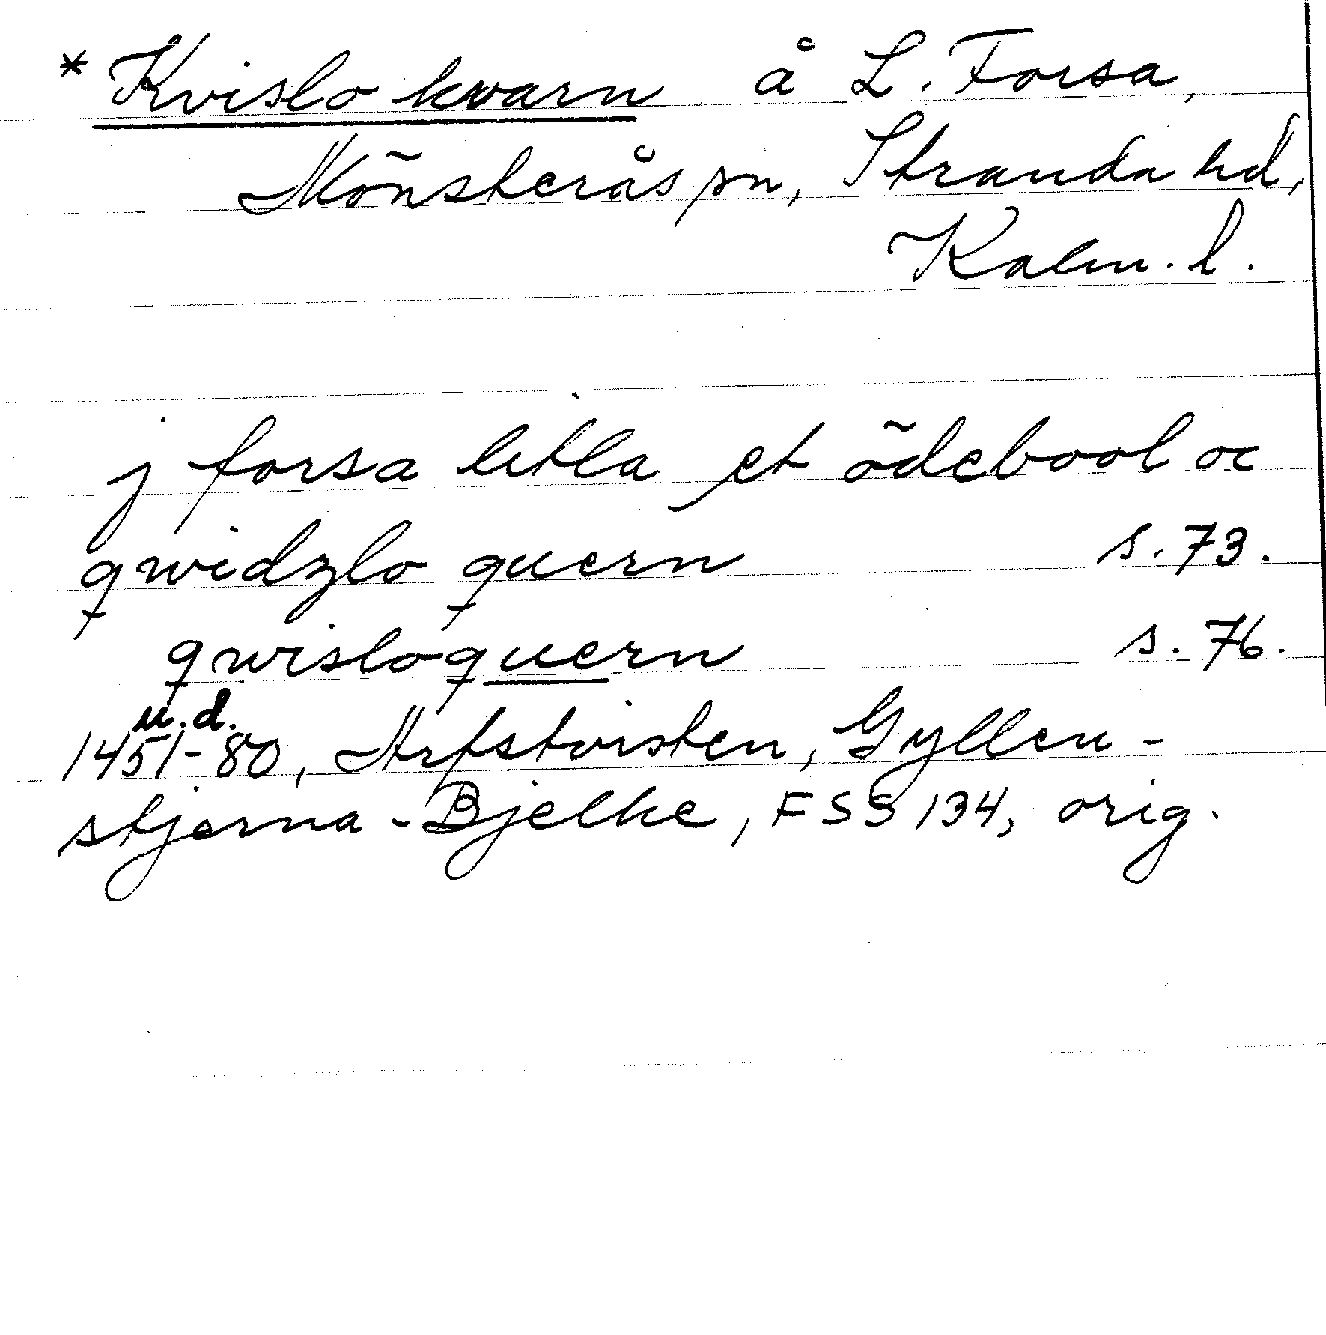 * Kvislo kvarn å L. Forsa,
Mönsterås sn, Stranda hd,
Kalm. l.
j forsa litla et ödebool oc
qwidzlo quern s. 73.
qwisloquern s. 76.
u.d.
1451-80, Arfstvisten, Gyllen-
stjerna-Bjelke, FSS 134, orig.